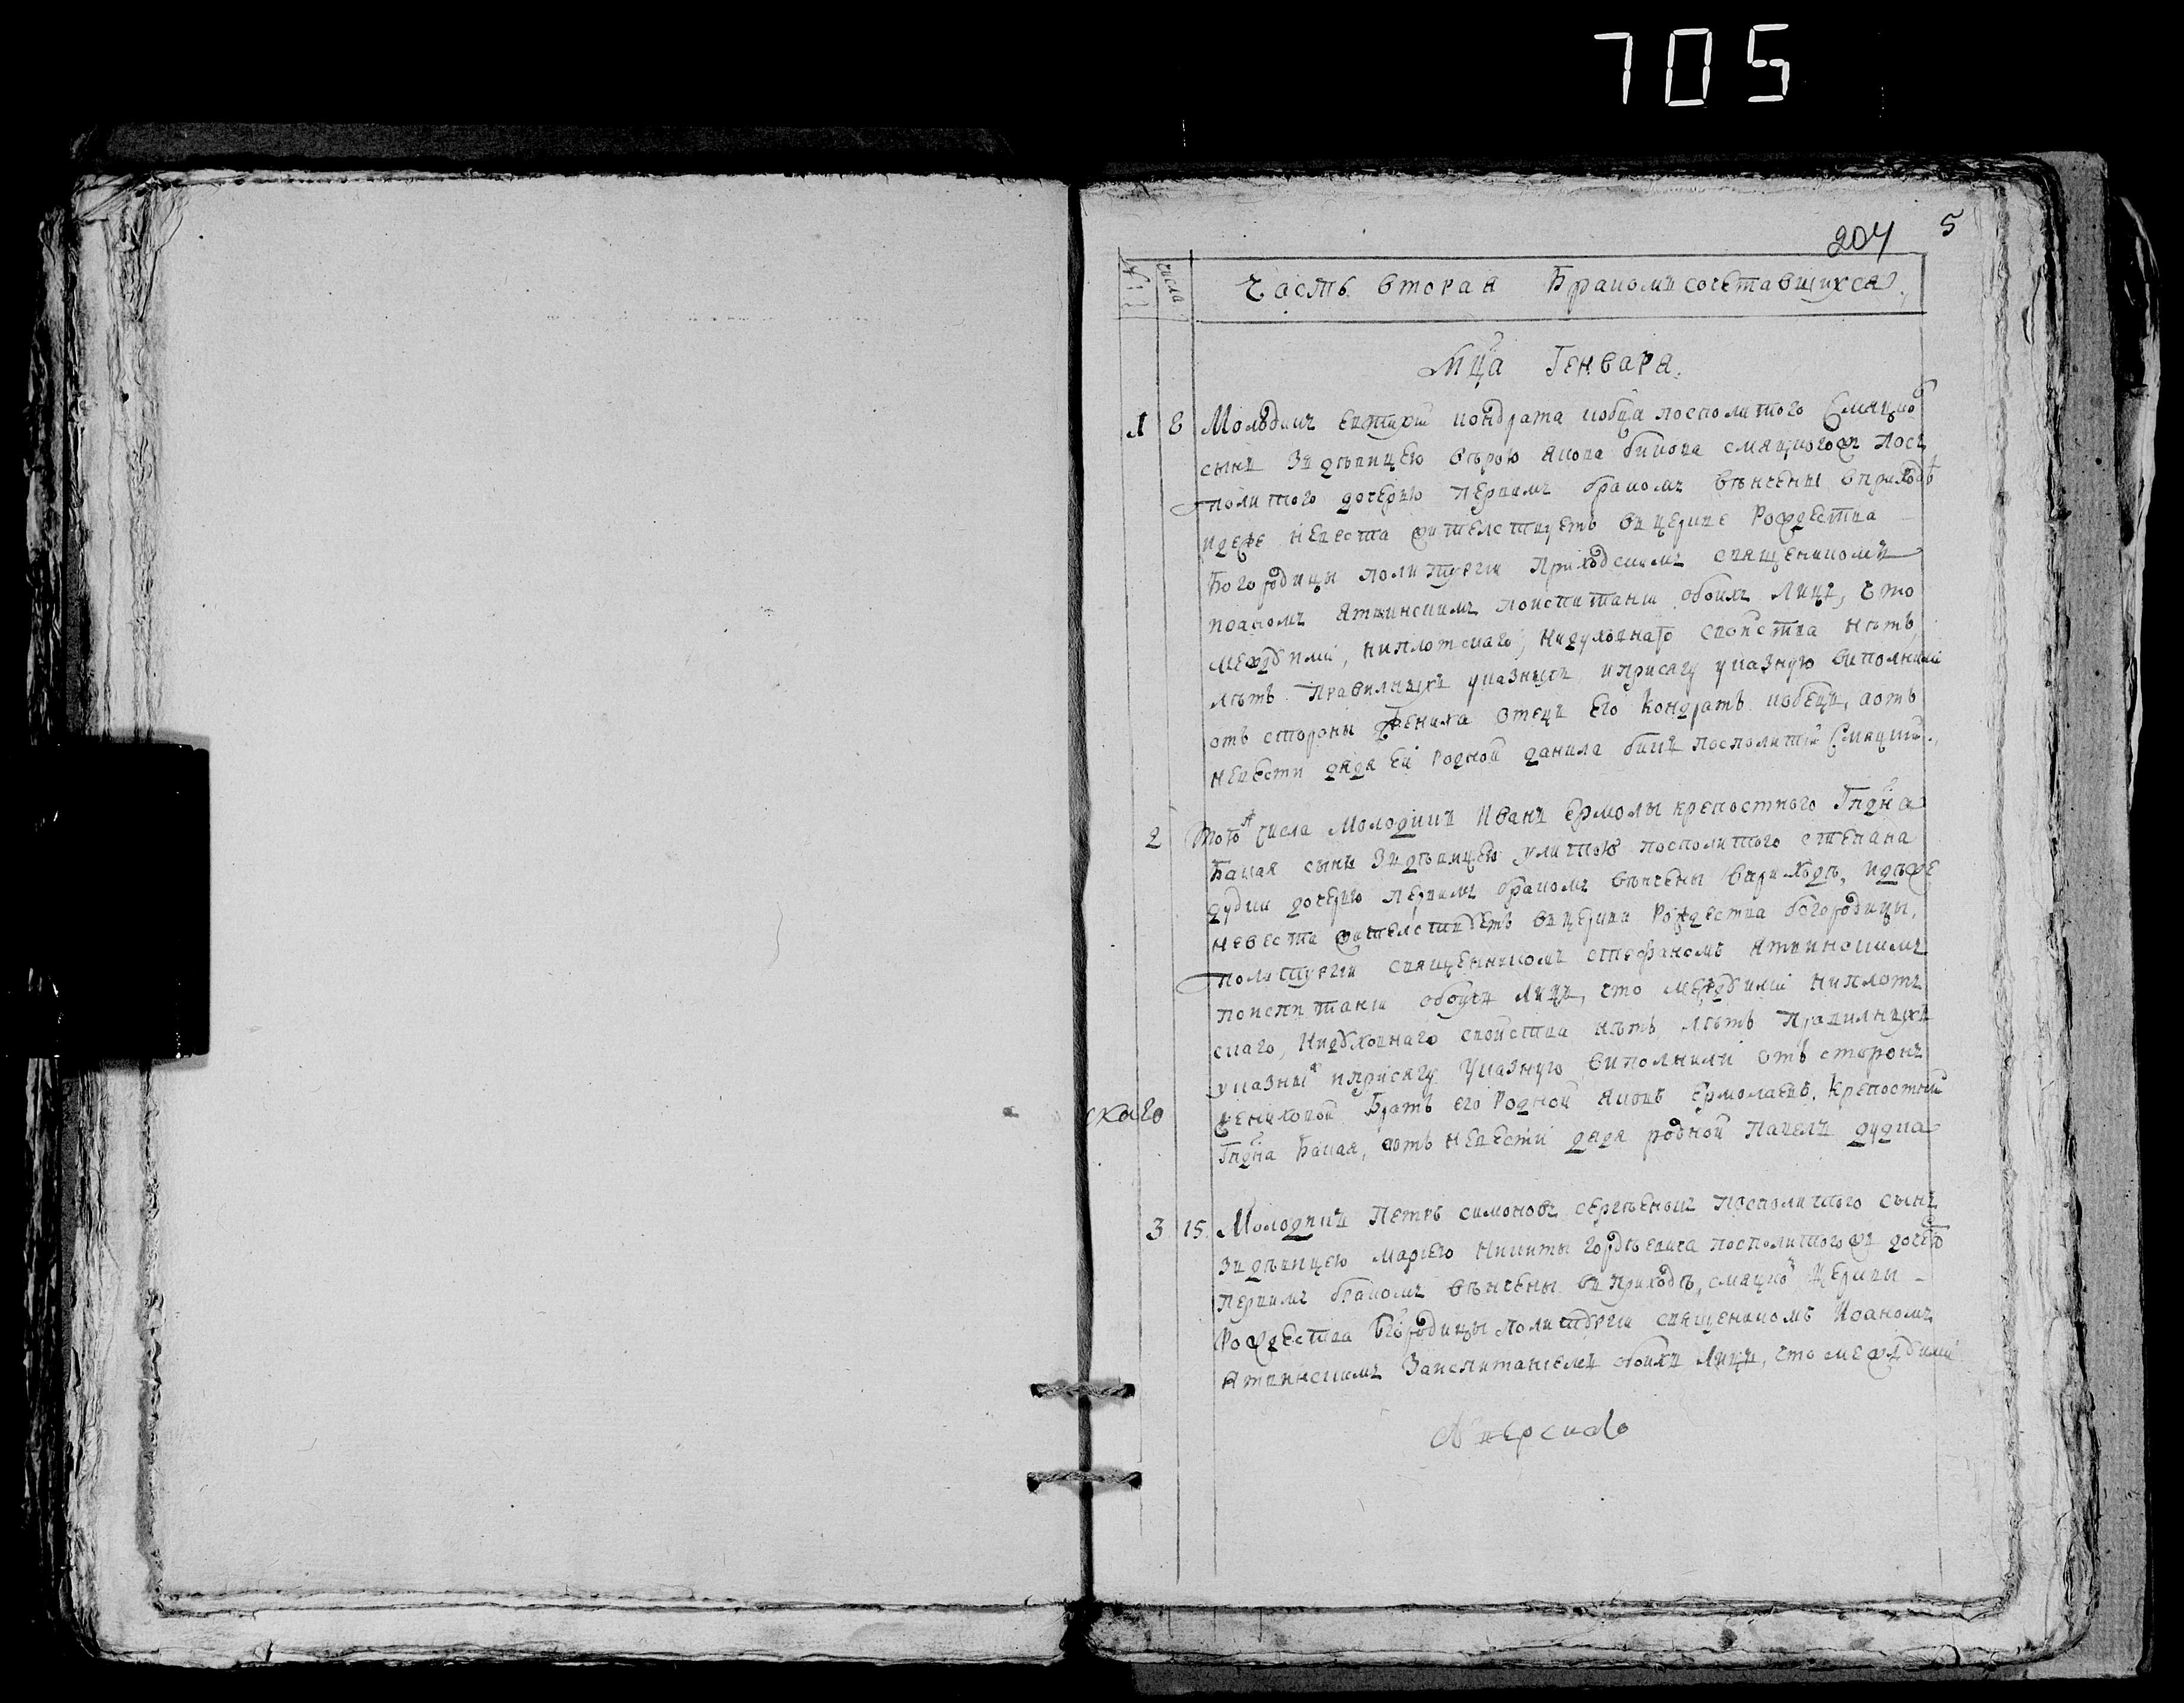 705
204 5
№ числа Часть вторая Бракомъ сочетавшихся
Мца Генваря.
1 8 Молодикъ Евтухий Кондрата кобца посполитого Смяцко
сынъ зъ дѣвицею Вѣрою Якова бикова смяцкогожъ пос
политого дочерю первимъ бракомъ вѣнчены в приходѣ
идеже невеста жителствуетъ въ церкве Рождества
Богородицы по литургии приходскимъ священикомъ
Иоаномъ Ятвинскимъ по испитании обоихъ лицъ, что
между ими, ни плотскаго, ни духовнаго свойства нѣтъ,
лѣтъ правилныхъ указныхъ, и присягу указную виполнили
отъ стороны жениха отецъ его Кондратъ кобецъ, а отъ
невести дядя ей родной данила бикъ посполитий Смяцкий,
2 Того числа Молодикъ Иванъ Ермолы крепостного Гпдна
Бакая сынъ зъ дѣвицею улитою посполитого степана
дудки дочерю первимъ бракомъ вѣнчены въ приходѣ, идѣже
невеста жителствуетъ въ церкви Рождества богородицы,
по литургии священникомъ стефаномъ Ятвинскимъ
по испитании обоихъ лицъ, что между ими ни плот
скаго, ни духовнаго свойства нѣтъ лѣтъ правилныхъ
указных и присягу указную виполнили отъ сторонъ
жениховой Братъ его Родной Яковъ Ермолаевъ, крепостний
Гпдна Бакая, а отъ невести дядя родной Павелъ дудка
скаго
3 15. Молодикъ Петръ симоновъ сергѣенокъ посполитого сынъ
зъ дѣвицею Мариею Никиты Гордѣевича посполитогожъ дочерю
первимъ бракомъ вѣнчены въ приходѣ, смяцкой церквы
Рождества Бгородицы по литургии священикомъ Иоаномъ
Ятвинскимъ за испитаниемъ обоихъ лицъ, что между ими